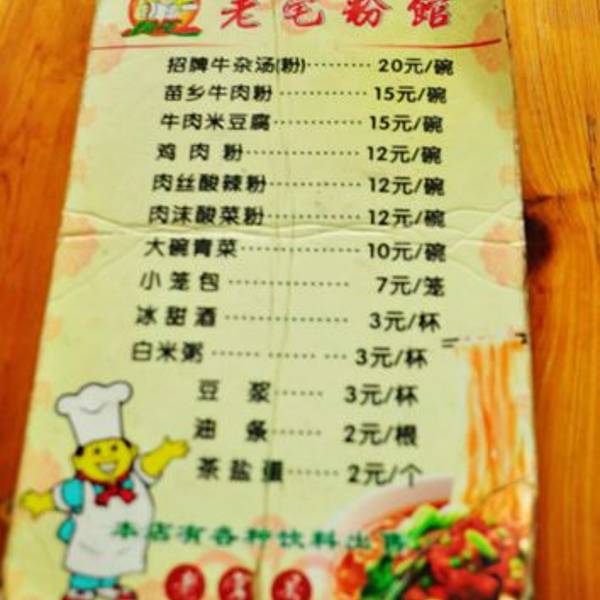 老宅粉馆
招牌牛杂汤(粉)········20元/碗
苗乡牛肉粉············15元/碗
牛肉米豆腐············15元/碗
鸡肉粉···············12元/碗
肉丝酸辣粉············12元/碗
肉沫酸菜粉············12元/碗
大碗青菜··············10元/碗
小笼包···············7元/笼
冰甜酒···············3元/杯
白米粥···············3元/杯
豆浆······3元/杯
油条······2元/根
茶盐蛋······2元/个
本店有各种饮料出售